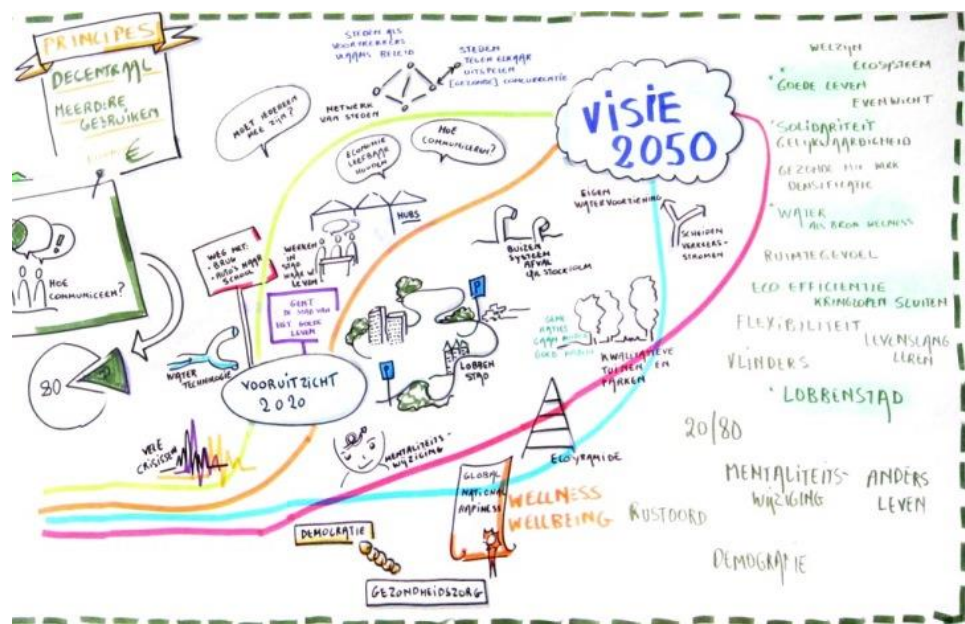 PRINCIPES
DECENTRAAL
MEERDERE
GEBRUIKEN
€
HOE
COMMUNICEREN?
80
MOET IEDEREEN
MEE ZIJN?
STEDEN ALS
VOORTREKKERS
VLAAMS BELEID
STEDEN
TEGEN ELKAAR
UITSPELEN
[GEZONDE] CONCURRENTIE
NETWERK
VAN STEDEN
ECONOMIE
LEEFBAAR
HOUDEN
HOE
COMMUNICEREN?
HUBS
WEG MET:
- BRUG
- AUTO'S NAAR
SCHOOL
WERKEN
IN
STAD
WAAR W
LEVEN!
GENT
DE STAD VAN
HET GOEDE
LEVEN
WATER
TECHNOLOGIE
VOORUITZICHT
2020
VELE
CRISISSEN
P
P
LOBBEN
STAD
BUIZEN
SYSTEEM
AFVAL
STOCKHOLM
VISIE
2050
EIGEN
WATERVOORZIENING
SCHEIDEN
VERKEERS-
STROMEN
KWALITATIEVE
TUINEN EN
PARKEN
MENTALITEITS-
WIJZIGING
ECOPYRAMIDE
GLOBAL
NATIONAL
HAPPINESS
WELLNESS
WELLBEING
DEMOGRATIE
GEZONDHEIDSZORG
RUSTOORD
WELZIJN
ECOSYSTEEM
* GOEDE LEVEN
EVENWICHT
* SOLIDARITEIT
GELIJKWAARDIGHEID
GEZONDE MIX WERK
DENSIFICATIE
* WATER
ALS BRON WELNESS
RUIMTEGEVOEL
ECO EFFICIENTIE
KRINGLOPEN SLUITEN
FLEXIBILITEIT
LEVENSLANG
LEREN
VLINDERS
* LOBBENSTAD
20/80
MENTALITEITS-
WIJZIGING
ANDERS
LEVEN
DEMOGRAFIE